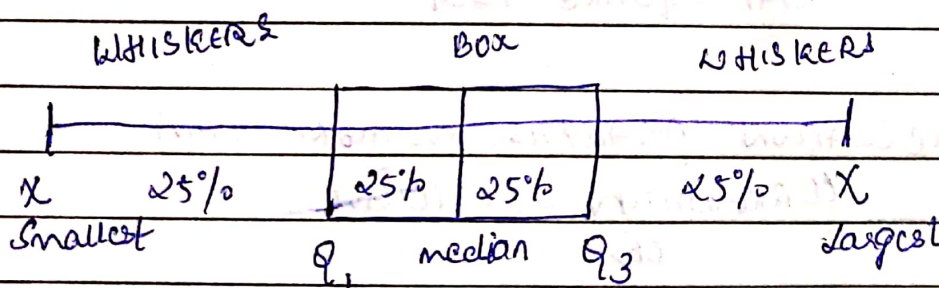 WHISKERS BOX WHISKERS
X 25% 25% 25% 25% X
Smallest Q1 median Q3 Largest